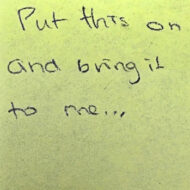 Put this on
and bring it
to me...